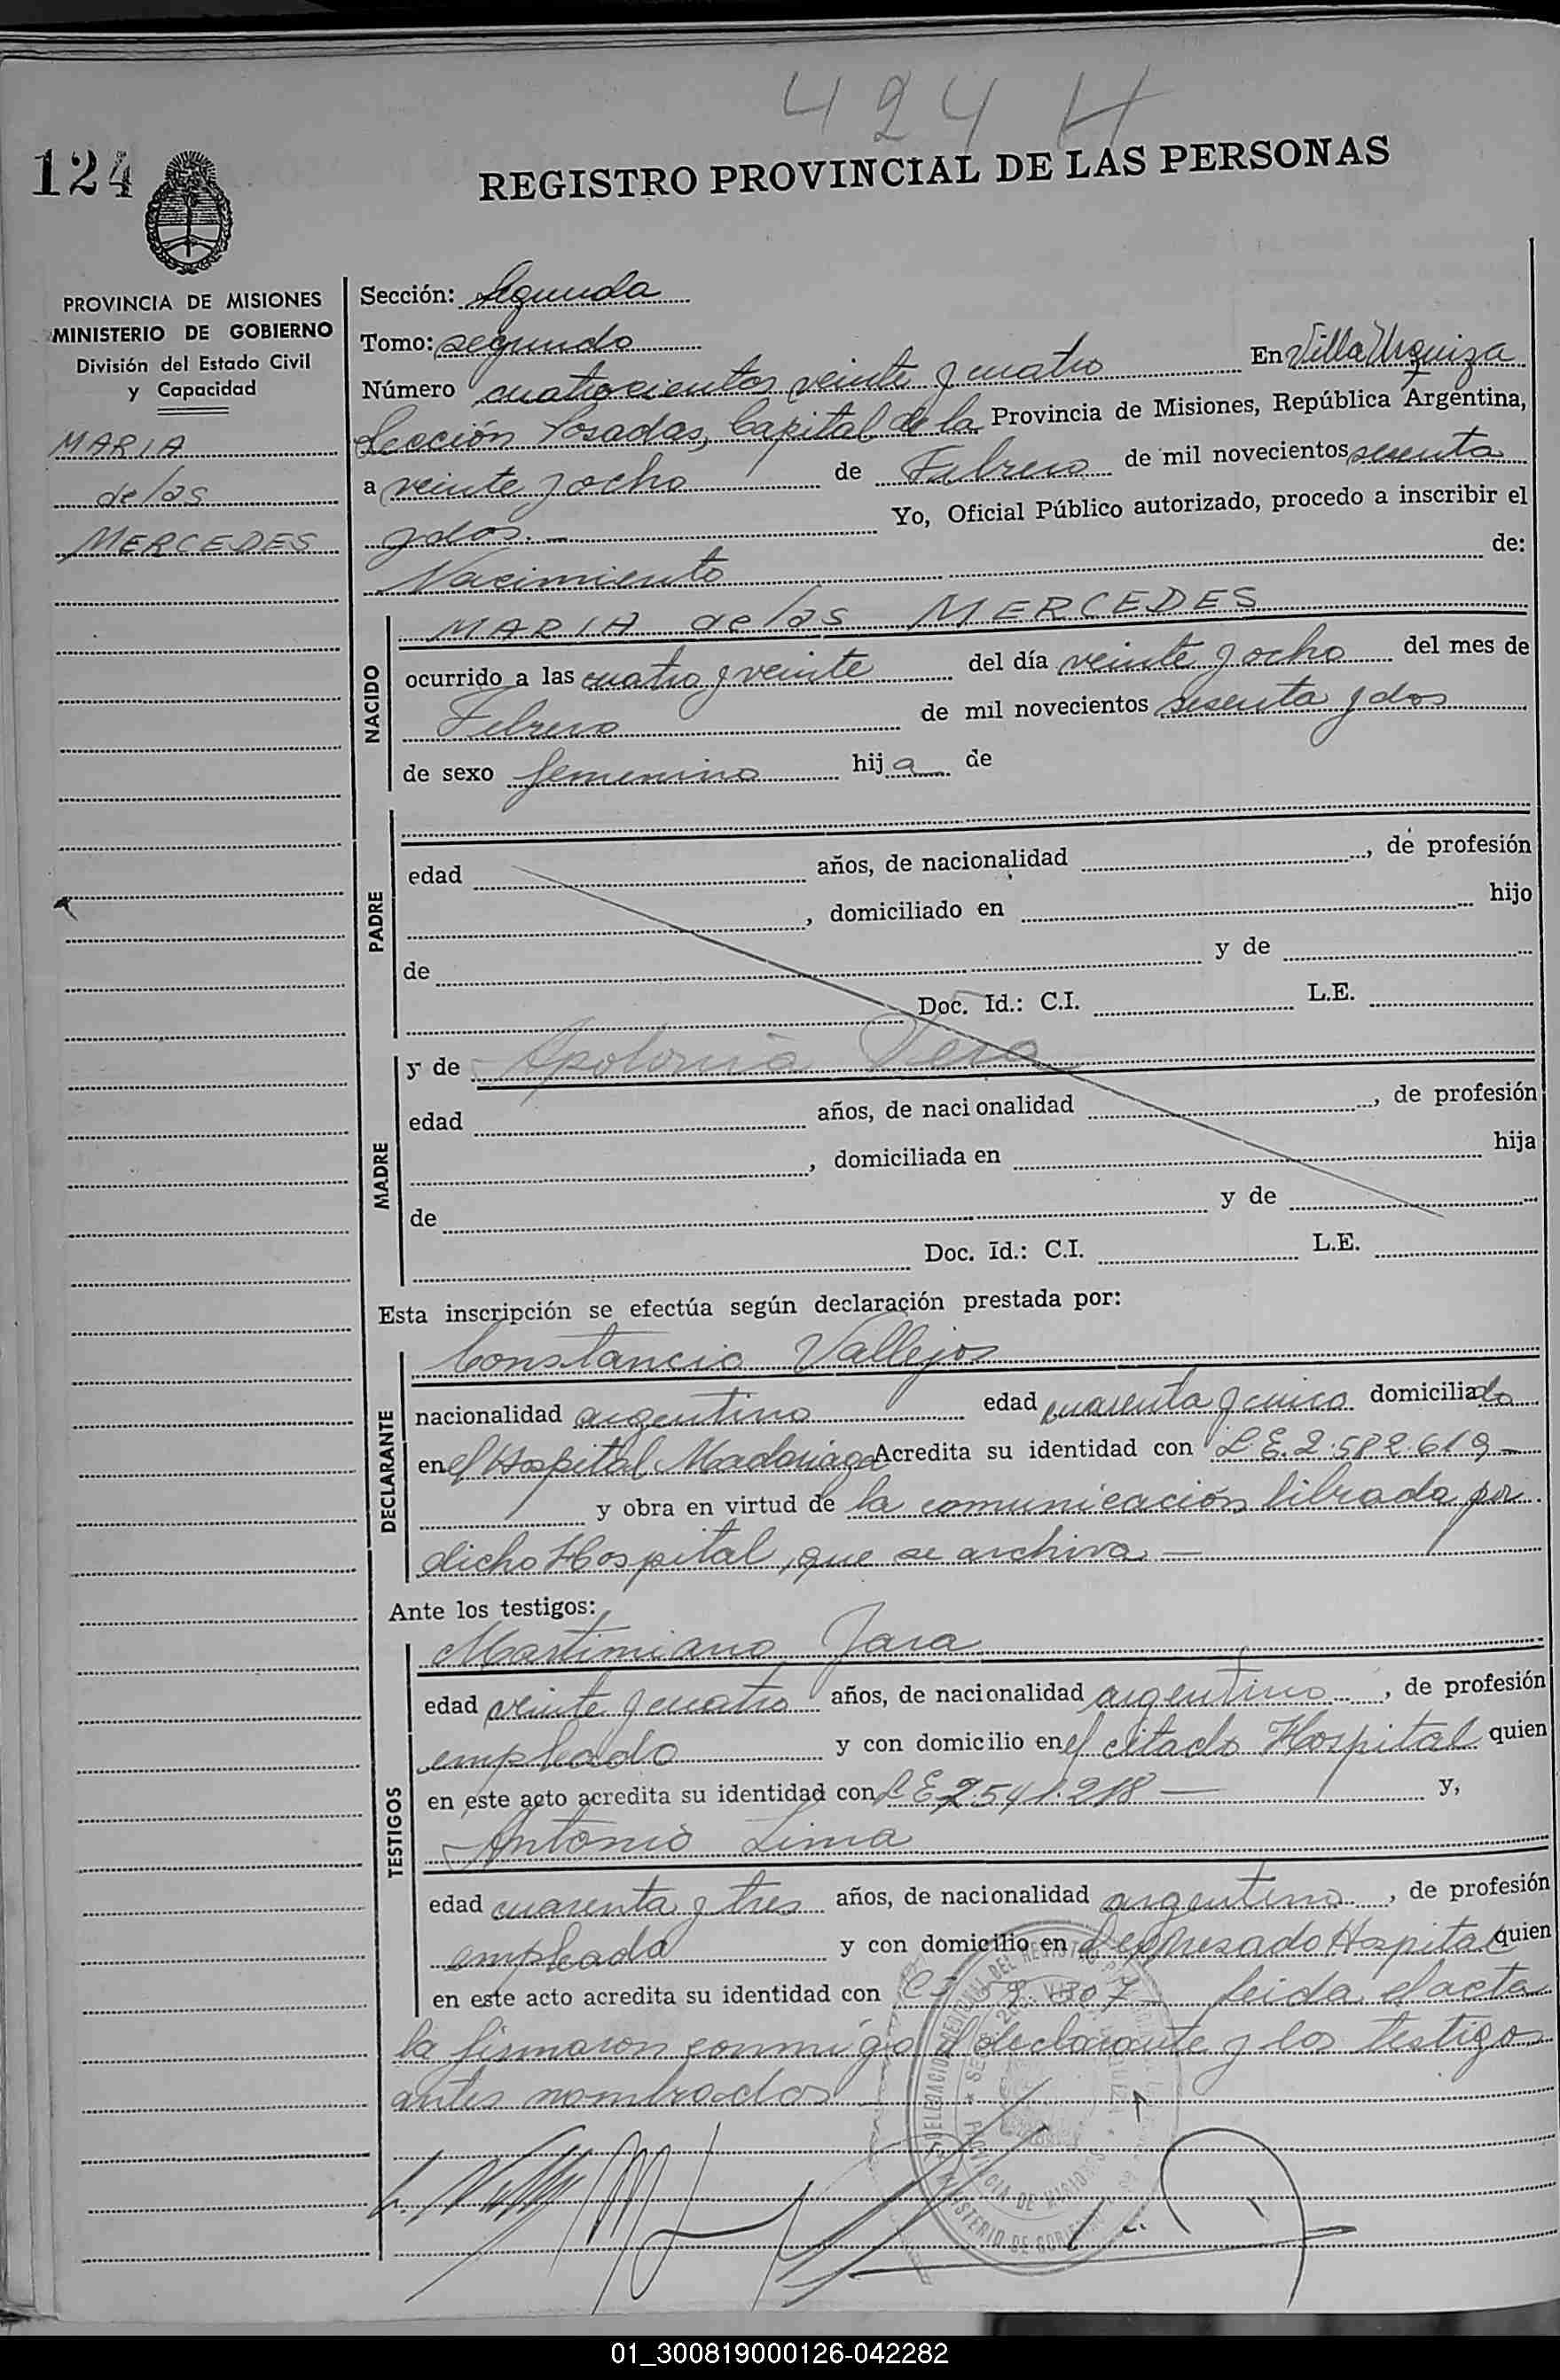 424 H
124
REGISTRO PROVINCIAL DE LAS PERSONAS
PROVINCIA DE MISIONES
MINISTERIO DE GOBIERNO
División del Estado Civil
y Capacidad
MARIA
de las
MERCEDES
Sección: Segunda
Tomo: segundo
Número cuatrocientos veinte y cuatro En Villa Urquiza
Sección Posadas, Capital de la Provincia de Misiones, República Argentina,
a veinte y ocho de Febrero de mil novecientos sesenta
y dos.— Yo, Oficial Público autorizado, procedo a inscribir el
Nacimiento de:
NACIDO
MARIA de las MERCEDES
ocurrido a las cuatro y veinte del día veinte y ocho del mes de
Febrero de mil novecientos sesenta y dos
de sexo femenino hija de
PADRE
edad años, de nacionalidad , de profesión
, domiciliado en hijo
de y de
Doc. Id.: C.I. L.E.
MADRE
y de Apolonia Vera
edad años, de nacionalidad , de profesión
, domiciliada en hija
de y de
Doc. Id.: C.I. L.E.
Esta inscripción se efectúa según declaración prestada por:
DECLARANTE
Constancio Vallejos
nacionalidad argentino edad cuarenta y cinco domiciliado
en el Hospital Madariaga Acredita su identidad con L.E. 2.582.619—
y obra en virtud de la comunicación librada por
dicho Hospital, que se archiva—
Ante los testigos:
TESTIGOS
Martimiano Jara
edad veinte y cuatro años, de nacionalidad argentino, de profesión
empleado y con domicilio en el citado Hospital quien
en este acto acredita su identidad con L E 2.541.218— y,
Antonio Lima
edad cuarenta y tres años, de nacionalidad argentino, de profesión
empleado y con domicilio en el expresado Hospital quien
en este acto acredita su identidad con leida el acta
la firmaron conmigo el declarante y los testigos
antes nombrados
01_300819000126-042282